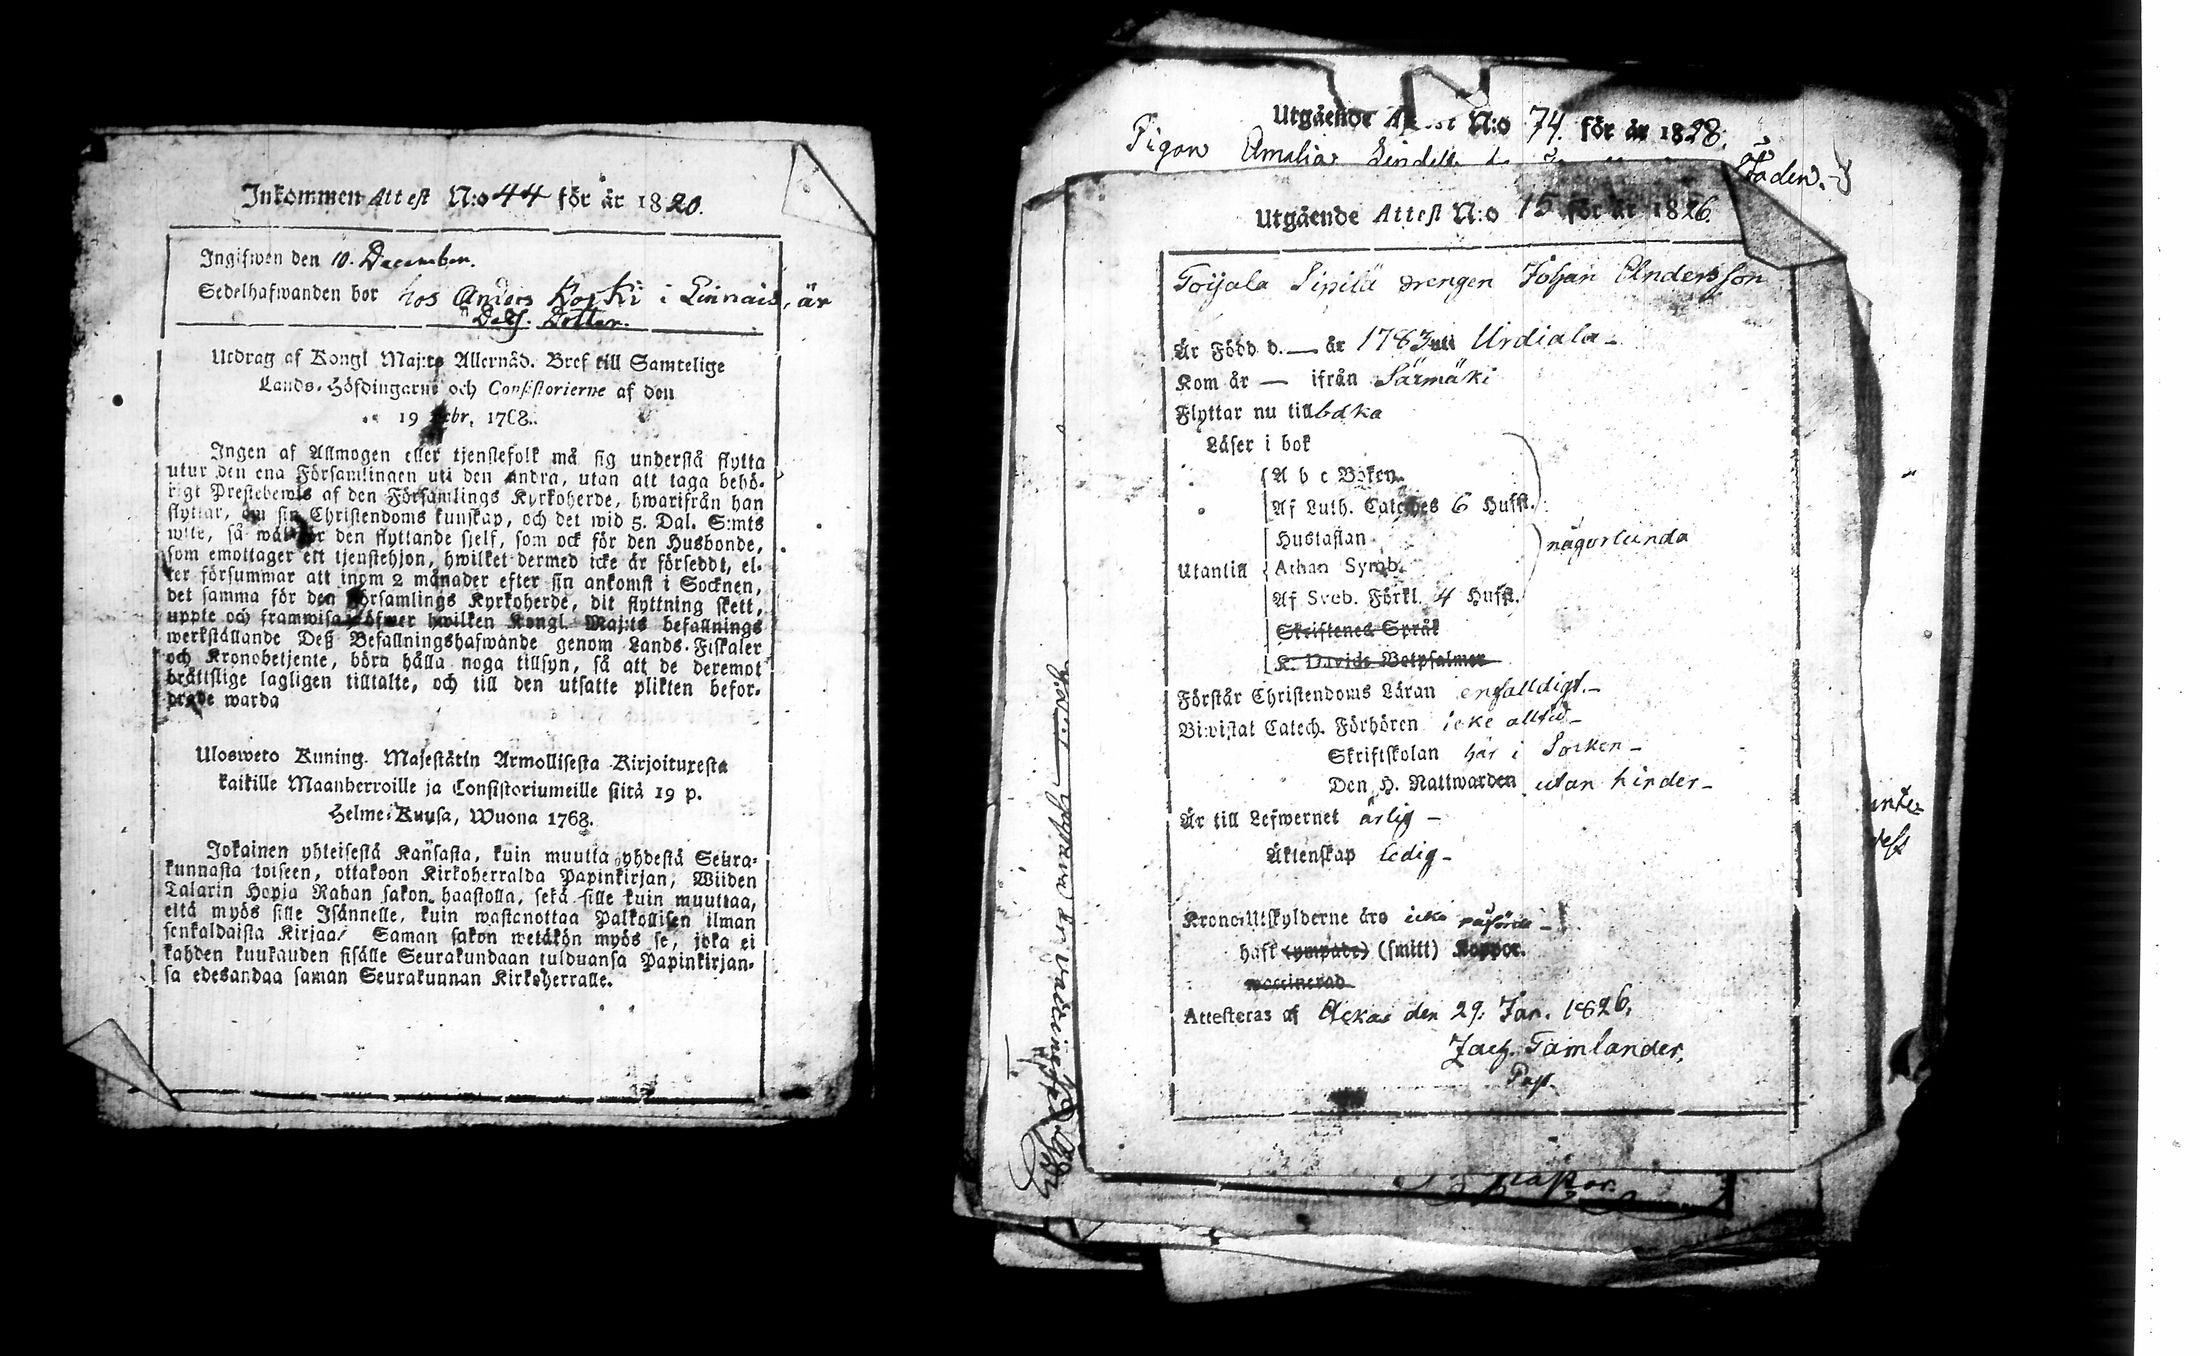 Inkommen Attest N:o 44 för år 1820.
Ingifwen den 10. December.
Sedelhafwanden bor hos Anders Koski i Linnais, är
Dess Dotter.
Utdrag af Kongl Maj:ts Allernåd. Bref till Samtelige
Lands-Höfdingarne och Consistorierne af den
19 Febr. 1768.
Ingen af Allmogen eller tjenstefolk må sig understå flytta
utur den ena Församlingen uti den andra, utan att taga behö-
rigt Prestebewis af den Församlings Kyrkoherde, hwarifrån han
flyttar, om sin Christendoms kunskap, och det wid 5. Dal. S:mts
wite, så wäl för den flyttande sjelf, som ock för den Husbonde,
som emottager ett tjenstehjon, hwilket dermed icke är försedt, el-
ler försummar att inom 2 månader efter sin ankomst i Socknen,
det samma för den Församlings Kyrkoherde, dit flyttning skett,
uppte och framwisa öfwer hwilken Kongl. Maj:ts befallnings
werkställande Deß Befallningshafwande genom Lands-Fiskaler
och Kronobetjente, böra hålla noga tillsyn, så att de deremot
bråttslige lagligen tilltalte, och till den utsatte plikten befor-
drade warda
Ulosweto Kuning. Majestätin Armollisesta Kirjoituxesta
kaikille Maanherroille ja Consistoriumeille siitä 19 p.
Helme-Kuusa, Wuona 1768.
Jokainen yhteisestä Kansasta, kuin muutta yhdestä Seura-
kunnasta toiseen, ottakoon Kirkoherralda Papinkirjan, Wiiden
Talarin Hopia Rahan sakon haastolla, sekä sille kuin muuttaa,
että myös sille Isännelle, kuin wastanottaa Palkollisen ilman
senkaldaista Kirjaa. Saman sakon wetäkön myös se, joka ei
kahden kuukauden sisälle Seurakundaan tulduansa Papinkirjan-
sa edesandaa saman Seurakunnan Kirkoherralle.
Utgående Attest N:o 74. för år 1828.
Pigan Amalia Lindell
Staden.
Utgående Attest N:o 15 för år 1826.
Toijala Sipilä drengen Johan Andersson
Är Född d. — år 178 i Urdiala -
Kom år — ifrån Särmäki
Flyttar nu tillbaka
Läser i bok
A b c Boken
Af Luth. Cateches 6 Hufst.
Hustaflan
någorlunda
Utantill Athan Symb.
Af Sveb. Förkl. 4 Hufst.
Skriftenes Språk
K. Davids Botpsalmer
Förstår Christendoms Läran enfalldigt. -
Biwistat Catech. Förhören icke alltid -
Skriftskolan här i Socken -
Den H. Nattwarden utan hinder -
Är till Lefwernet ärlig -
Äktenskap ledig -
Krono-Utskylderne äro icke påförde -
haft (ympade) (smitt) Koppor.
waccinerad
Attesteras af Ackas den 29. Jan. 1826.
Zach. Tamlander,
Past.
Pastor.